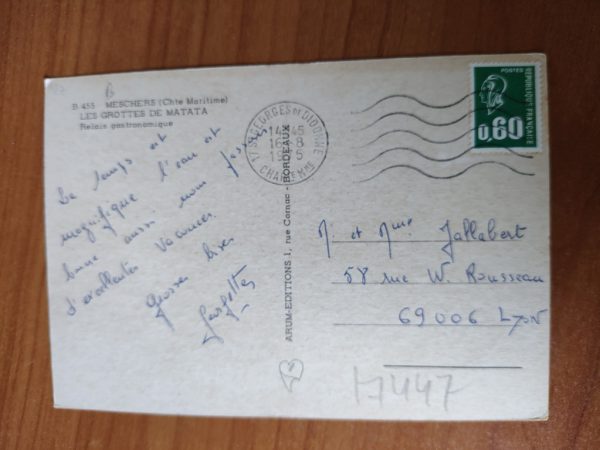 B. 455 MESCHERS (Chte Maritime)
LES GROTTES DE MATATA
Relais gastronomique
Le temps est
magnifique l'eau est
bonne aussi nous passons
d'excellentes vacances.
Grosses bises
ARUM-EDITIONS 1, rue Cornac - BORDEAUX
17 ST GEORGES DE DIDONNE
14 H 45
16 - 8
1975
CHARENTE Mme
POSTES
REPUBLIQUE FRANÇAISE
0,60
M. et Mme Jallabert
58 rue W. Rousseau
69006 LYON
17447